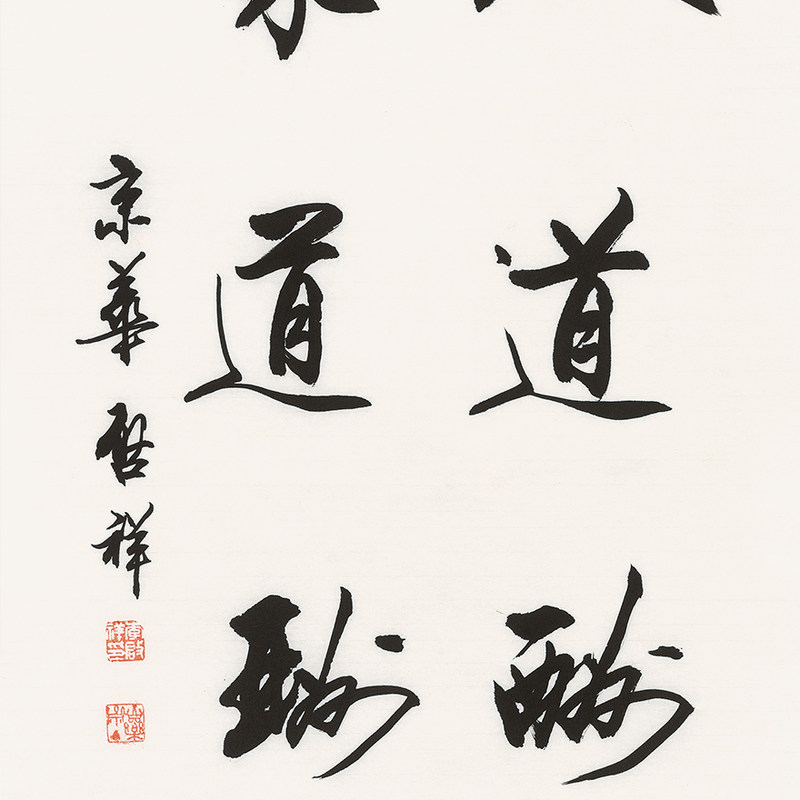 道酬
道酬
京華啓祥